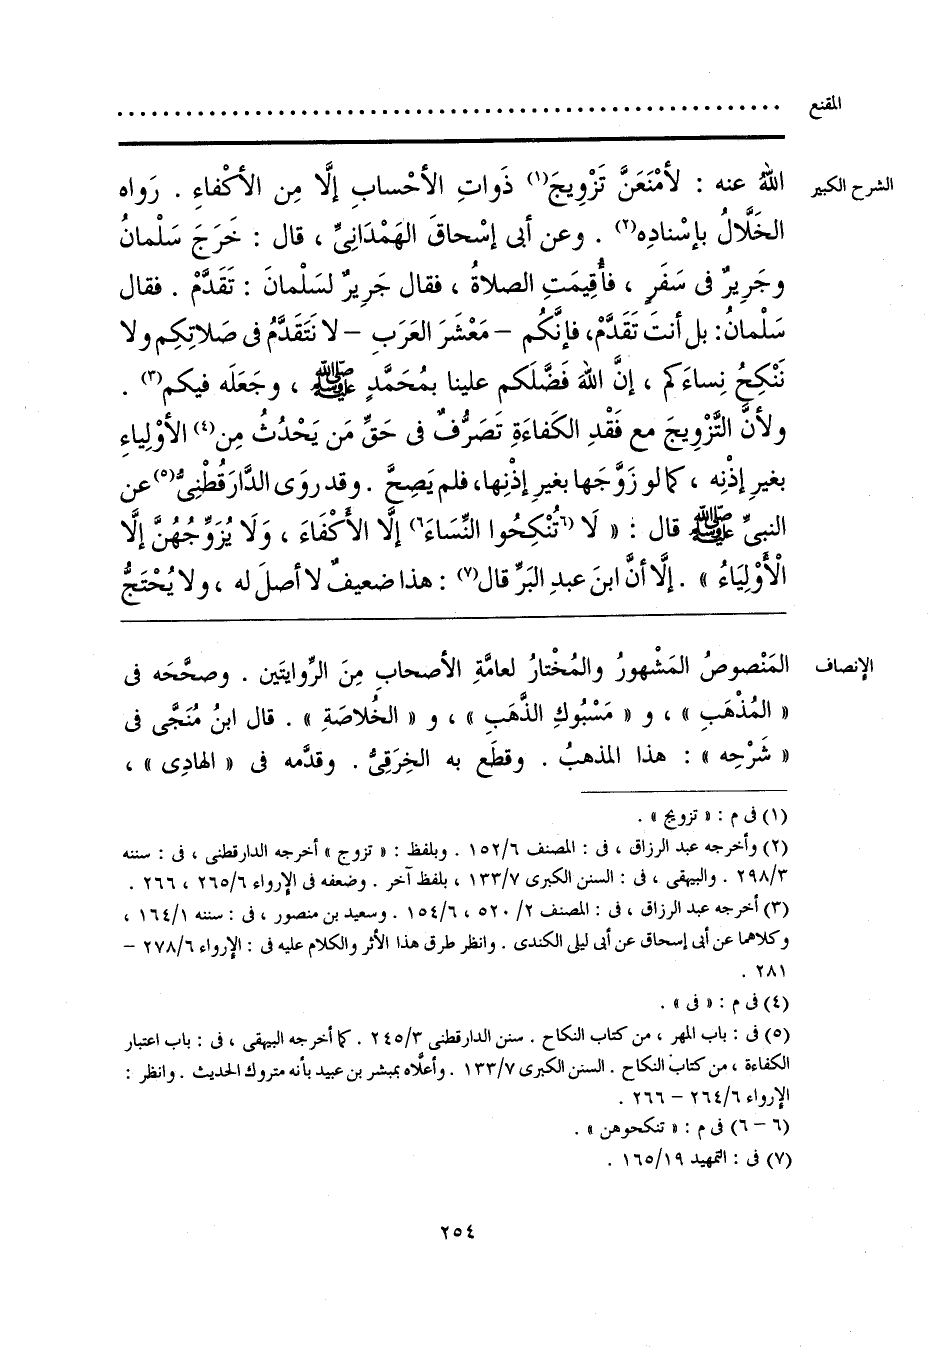 المقنع ................................................................
الشرح الكبير اللهُ عنه : لأمْنَعَنَّ تَزْوِيجَ(١) ذَواتِ الأحْسابِ إلَّا مِن الأكْفاءِ . رَواه
الخَلَّالُ بإسْنادِه(٢) . وعن أبى إسْحاقَ الهَمْدَانِىِّ ، قال : خَرَجَ سَلْمانُ
وجَرِيرٌ فى سَفَرٍ ، فأُقِيمَتِ الصلاةُ ، فقال جَرِيرٌ لسَلْمانَ : تَقَدَّمْ . فقال
سَلْمانُ: بل أنتَ تَقَدَّمْ، فإنَّكُم – مَعْشَرَ العَرَبِ – لا نَتَقَدَّمُ فى صَلاتِكم ولا
نَنْكِحُ نِساءَكم ، إنَّ اللهَ فَضَّلَكم علينا بمُحَمَّدٍ ﷺ ، وجَعَلَه فيكم(٣) .
ولأنَّ التَّزْوِيجَ مع فَقْدِ الكَفاءَةِ تَصَرُّفٌ فى حَقِّ مَن يَحْدُثُ مِن(٤) الأوْلِياءِ
بغيرِ إذْنِه ، كما لو زَوَّجَها بغيرِ إذْنِها، فلم يَصِحَّ . وقد روَى الدَّارَقُطْنِىُّ(٥) عن
النبىِّ ﷺ قال : « لَا (٦تُنْكِحُوا النِّسَاءَ٦) إلَّا الأَكْفَاءَ ، وَلَا يُزَوِّجُهُنَّ إلَّا
الْأَوْلِيَاءُ » . إلَّا أنَّ ابنَ عبدِ البَرِّ قال(٧) : هذا ضعيفٌ لا أصلَ له ، ولا يُحْتَجُّ
الإنصاف المَنْصوصُ المَشْهورُ والمُخْتارُ لعامَّةِ الأصحابِ مِنَ الرِّوايتَين . وصحَّحَه فى
« المُذْهَبِ » ، و « مَسْبُوكِ الذَّهَبِ » ، و « الخُلاصَةِ » . قال ابنُ مُنَجَّى فى
« شَرْحِه » : هذا المذهبُ . وقطَع به الخِرَقِىُّ . وقدَّمه فى « الهادِى » ،
(١) فى م : « تزويج » .
(٢) وأخرجه عبد الرزاق ، فى : المصنف ١٥٢/٦ . وبلفظ : « تزوج » أخرجه الدارقطنى ، فى : سننه
٢٩٨/٣ . والبيهقى ، فى : السنن الكبرى ١٣٣/٧ ، بلفظ آخر . وضعفه فى الإرواء ٢٦٥/٦ ، ٢٦٦ .
(٣) أخرجه عبد الرزاق ، فى : المصنف ٢/ ٥٢٠ ، ١٥٤/٦ . وسعيد بن منصور ، فى : سننه ١٦٤/١ ،
وكلاهما عن أبى إسحاق عن أبى ليلى الكندى . وانظر طرق هذا الأثر والكلام عليه فى : الإرواء ٢٧٨/٦ –
٢٨١ .
(٤) فى م : « فى » .
(٥) فى : باب المهر ، من كتاب النكاح . سنن الدارقطنى ٢٤٥/٣ . كما أخرجه البيهقى ، فى : باب اعتبار
الكفاءة ، من كتاب النكاح . السنن الكبرى ١٣٣/٧ . وأعلَّاه بمبشر بن عبيد بأنه متروك الحديث . وانظر :
الإرواء ٢٦٤/٦ – ٢٦٦ .
(٦ – ٦) فى م : « تنكحوهن » .
(٧) فى : التمهيد ١٦٥/١٩ .
٢٥٤